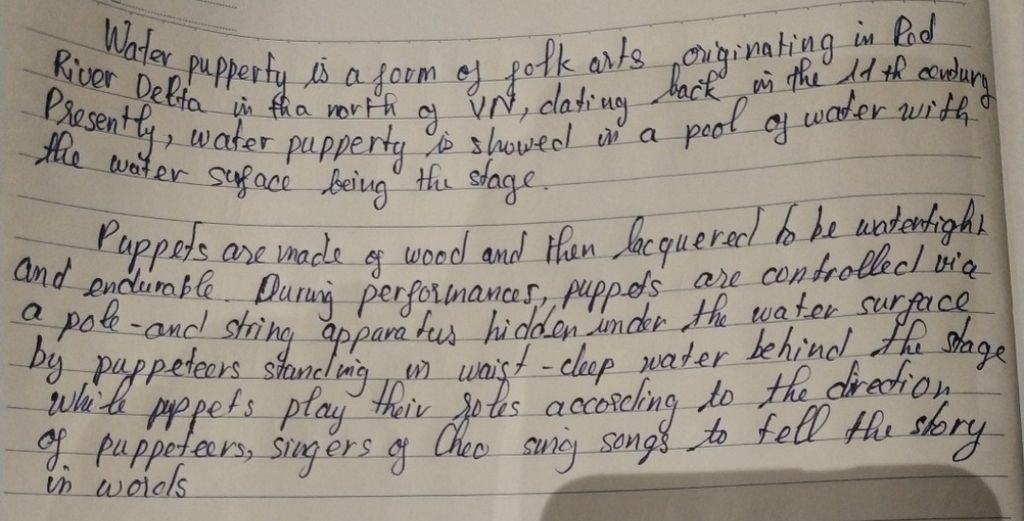 Water pupperty is a form of folk arts originating in Rod
River Delta in tha north of VN, dating back in the 11th century
Presently, water pupperty is showed in a pool of water with
the water suface being the stage.
Puppets are made of wood and then lacquered to be watertight
and endurable. During performances, puppets are controlled via
a pole-and string apparatus hidden under the water surface
by puppeteers standing in waist-deep water behind the stage
while puppets play their roles according to the direction
of puppeteers, singers of Cheo sing songs to tell the story
in words